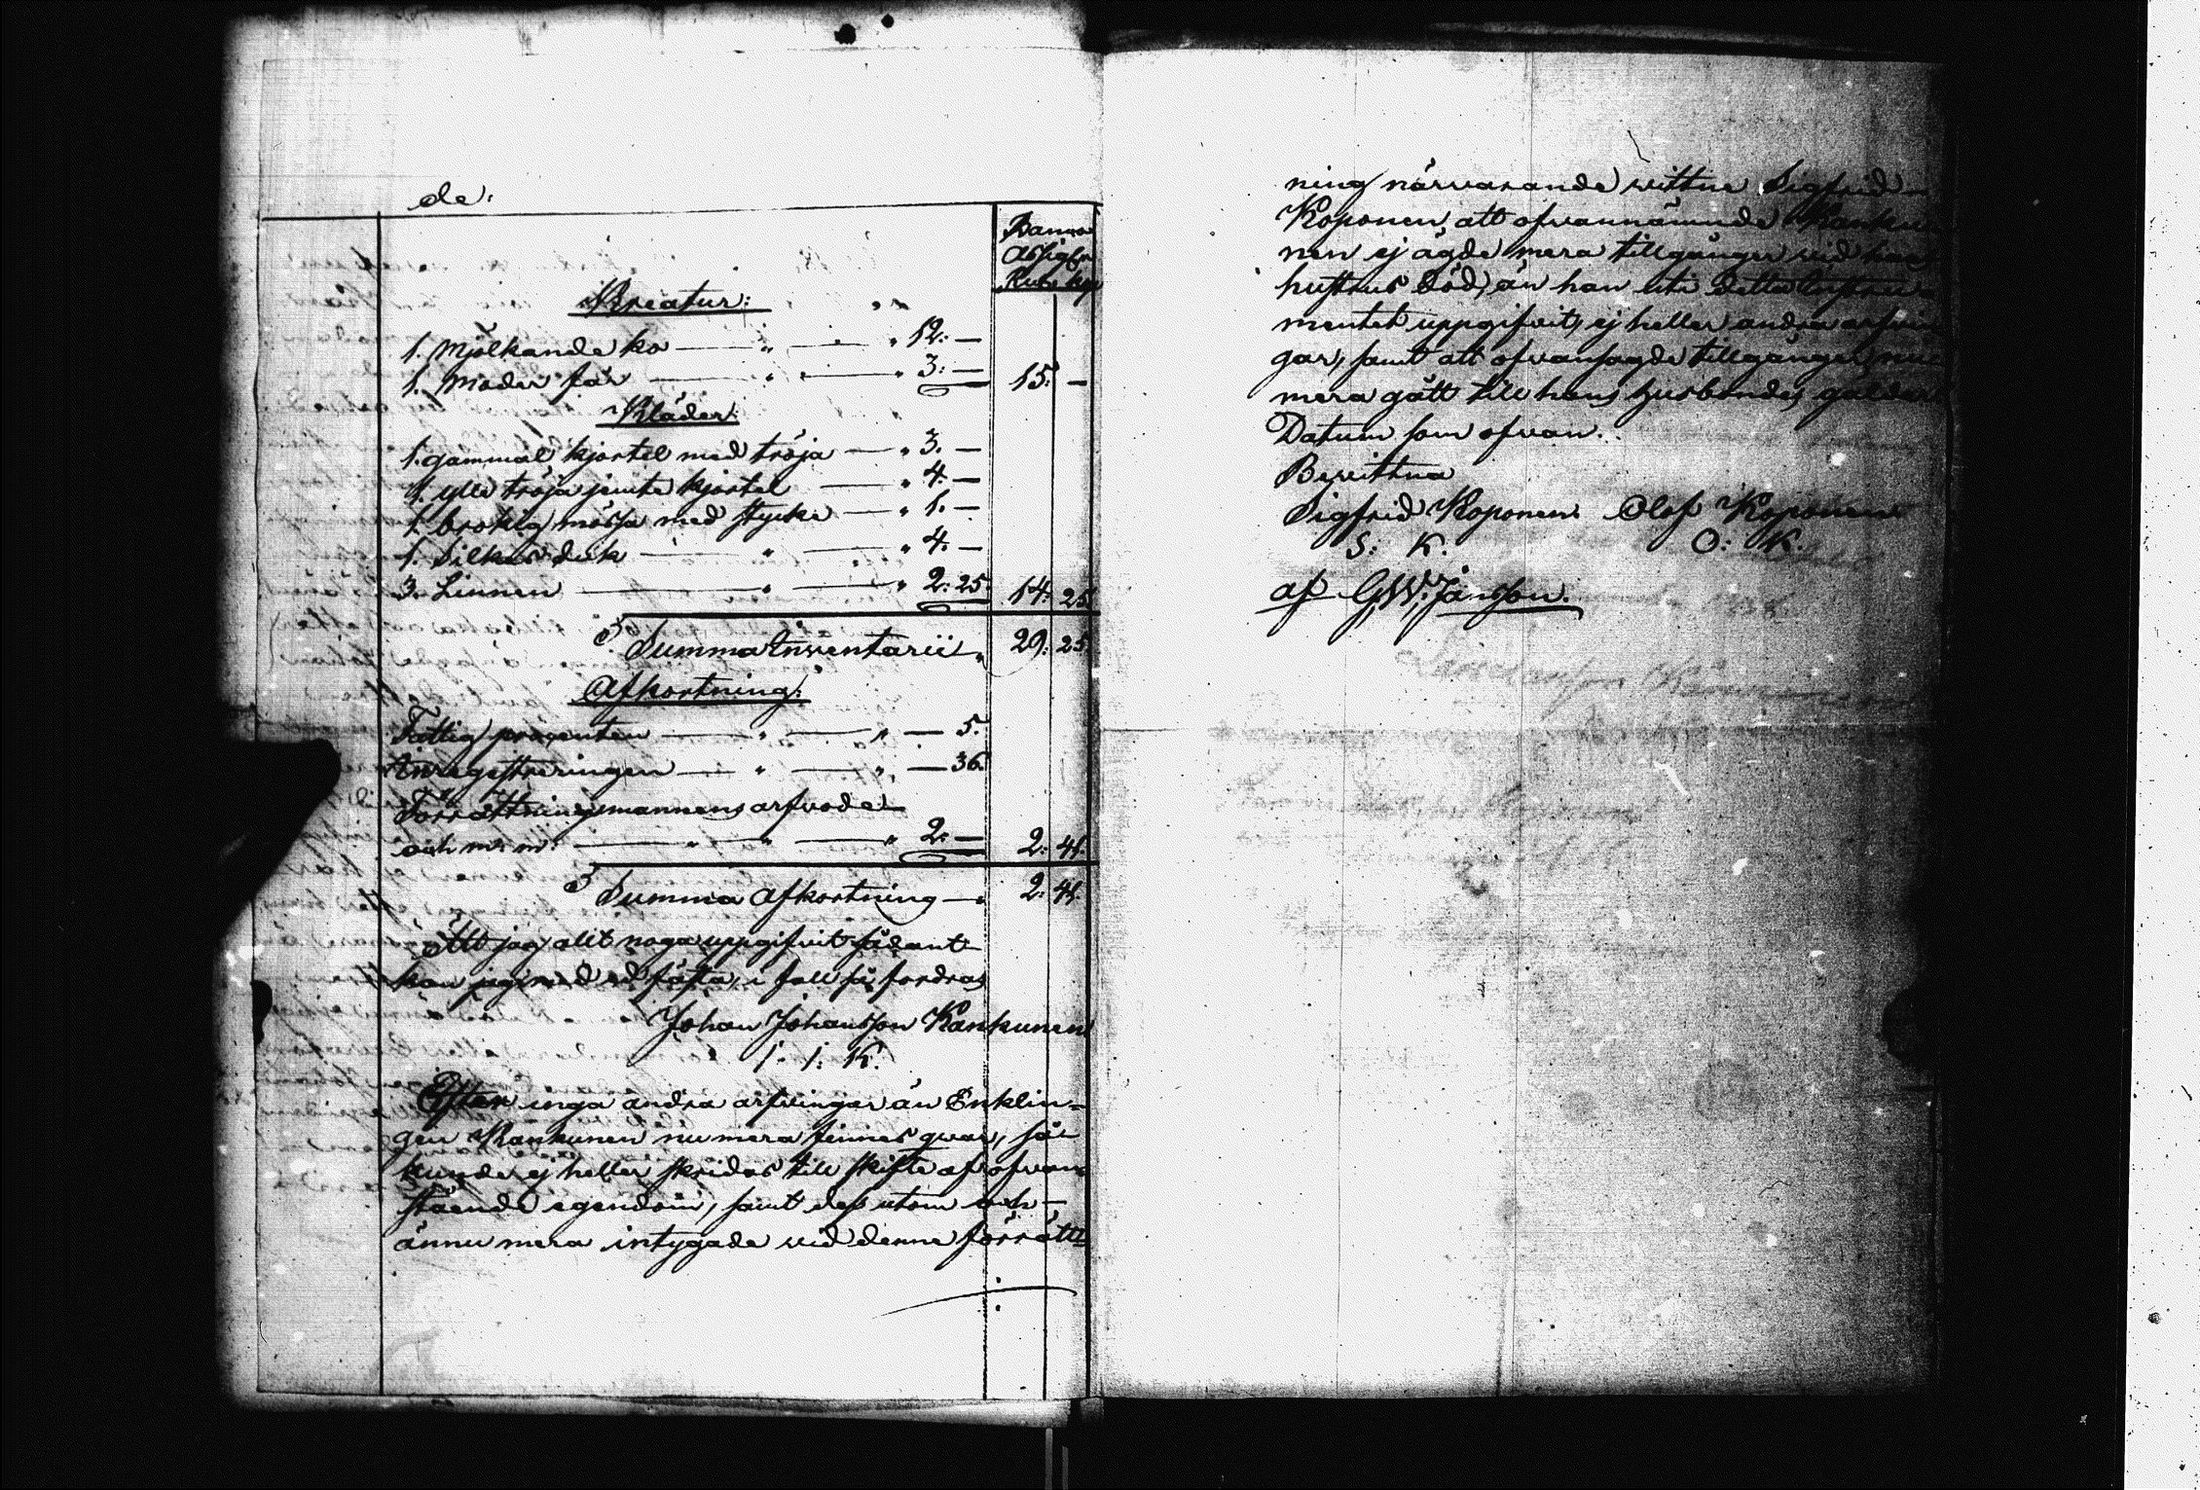 de:
Banco
Assign
Rub. kop
Kreatur:
1. Mjölkande ko — " — " 12: —
1. Moder får — " — " 3: — 15: —
Kläder:
1. gammal kjortel med tröja — " 3. —
1. ylle tröja jemte kjortel — " 4. —
1. brokig mössa med stycke — " 1. —
1. Silkes duk — " — " 4. —
3. Linnen — " — " 2: 25. 14: 25.
Summa Inventarii " 29: 25.
Afkortning:
Fattig procenten — " — " — 5.
Inregistreringen — " — " — 36.
Förrättningsmannens arfvode
och m: m: — " — " — " 2: — 2: 41.
Summa afkortning — " 2: 41.
Att jag alt noga uppgifvit sådant
kan jag med ed fästa, i fall så fordras
Johan Johansson Kankunen
I. I: K.
Efter inga andra arfvingar än Enklin-
gen Kankunen nu mera finnes qvar, så
kunde ej heller skridas till skifte af ofvan-
stående egendom, samt dess utom och
ännu mera intygade vid denne förrätt-
ning närvarande vittne Sigfrid
Koponen, att ofvannämnde Kanku-
nen ej ägde mera tillgångar vid hans
hustrus död, än han uti detta Instru-
mentet uppgifvit, ej heller andra arfvin-
gar, samt att ofvansagde tillgångar nu-
mera gått till hans husbondes gälder
Datum som ofvan.
Bevittna
Sigfrid Koponen. Olof Koponen
S: K. O: K.
af